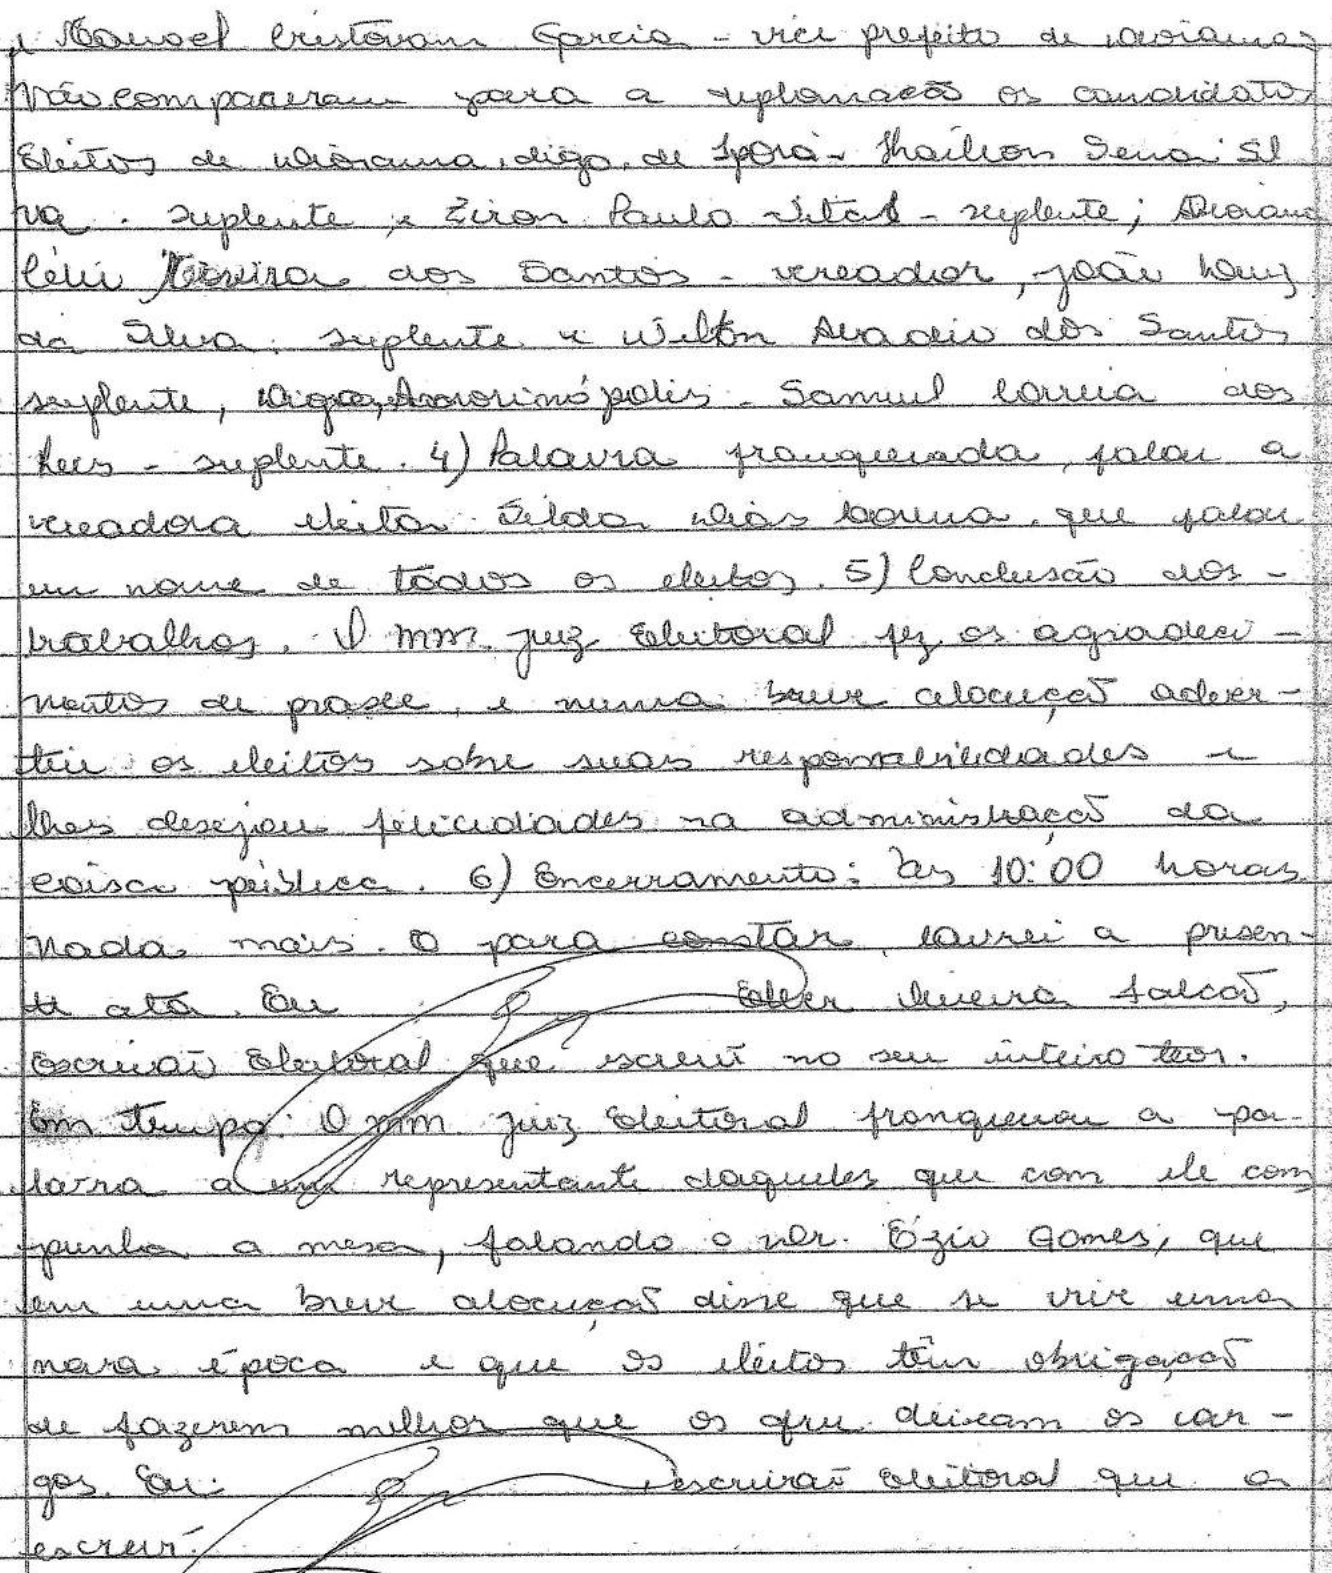 e Manoel Cristovam Garcia - vice prefeito de Diorama,
Não compareram para a diplomação os candidatos
Eleitos de Diorama, digo, de Iporá - Thailson Sena Sil
va - suplente, e Ziron Paulo Vital - suplente; Diorama
Célio Teixeira dos Santos - vereador, João Luiz
da Silva, suplente e Wilton Amadeio dos Santos
suplente, digo, Amorinópolis - Samuel Correia dos
Reis - suplente. 4) Palavra franqueada, falou a
vereadora eleita Dias que falou
em nome de todos os eleitos. 5) Conclusão dos -
trabalhos. O mm. juiz Eleitoral fez os agradeci -
mentos de praxe, e numa breve alocução adver-
tiu os eleitos sobre suas responsabilidades e
lhes desejou felicidades na administração da
coisa pública. 6) Encerramento: às 10:00 horas
Nada mais. E para constar, lavrei a presen-
te ata. Eu Falcão,
Escrivão Eleitoral que escrevi no seu inteiro teor.
Em tempo: O mm. juiz Eleitoral franqueou a pa-
lavra a um representante daqueles que com ele com
punha a mesa, falando o Dr. Ézio Gomes, que
em uma breve alocução disse que se vive uma
nova época e que os eleitos têm obrigação
de fazerem melhor que os que deixam os car -
gos. Eu escrivão eleitoral que a
escrevi.